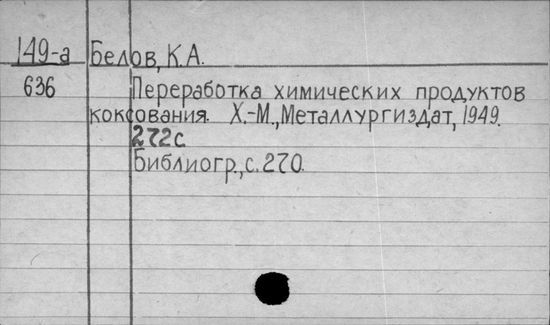 149-а Белов, К.А.
636 Переработка химических продуктов
коксования. Х.-М., Металлургиздат, 1949.
272с
Библиогр., с. 270.